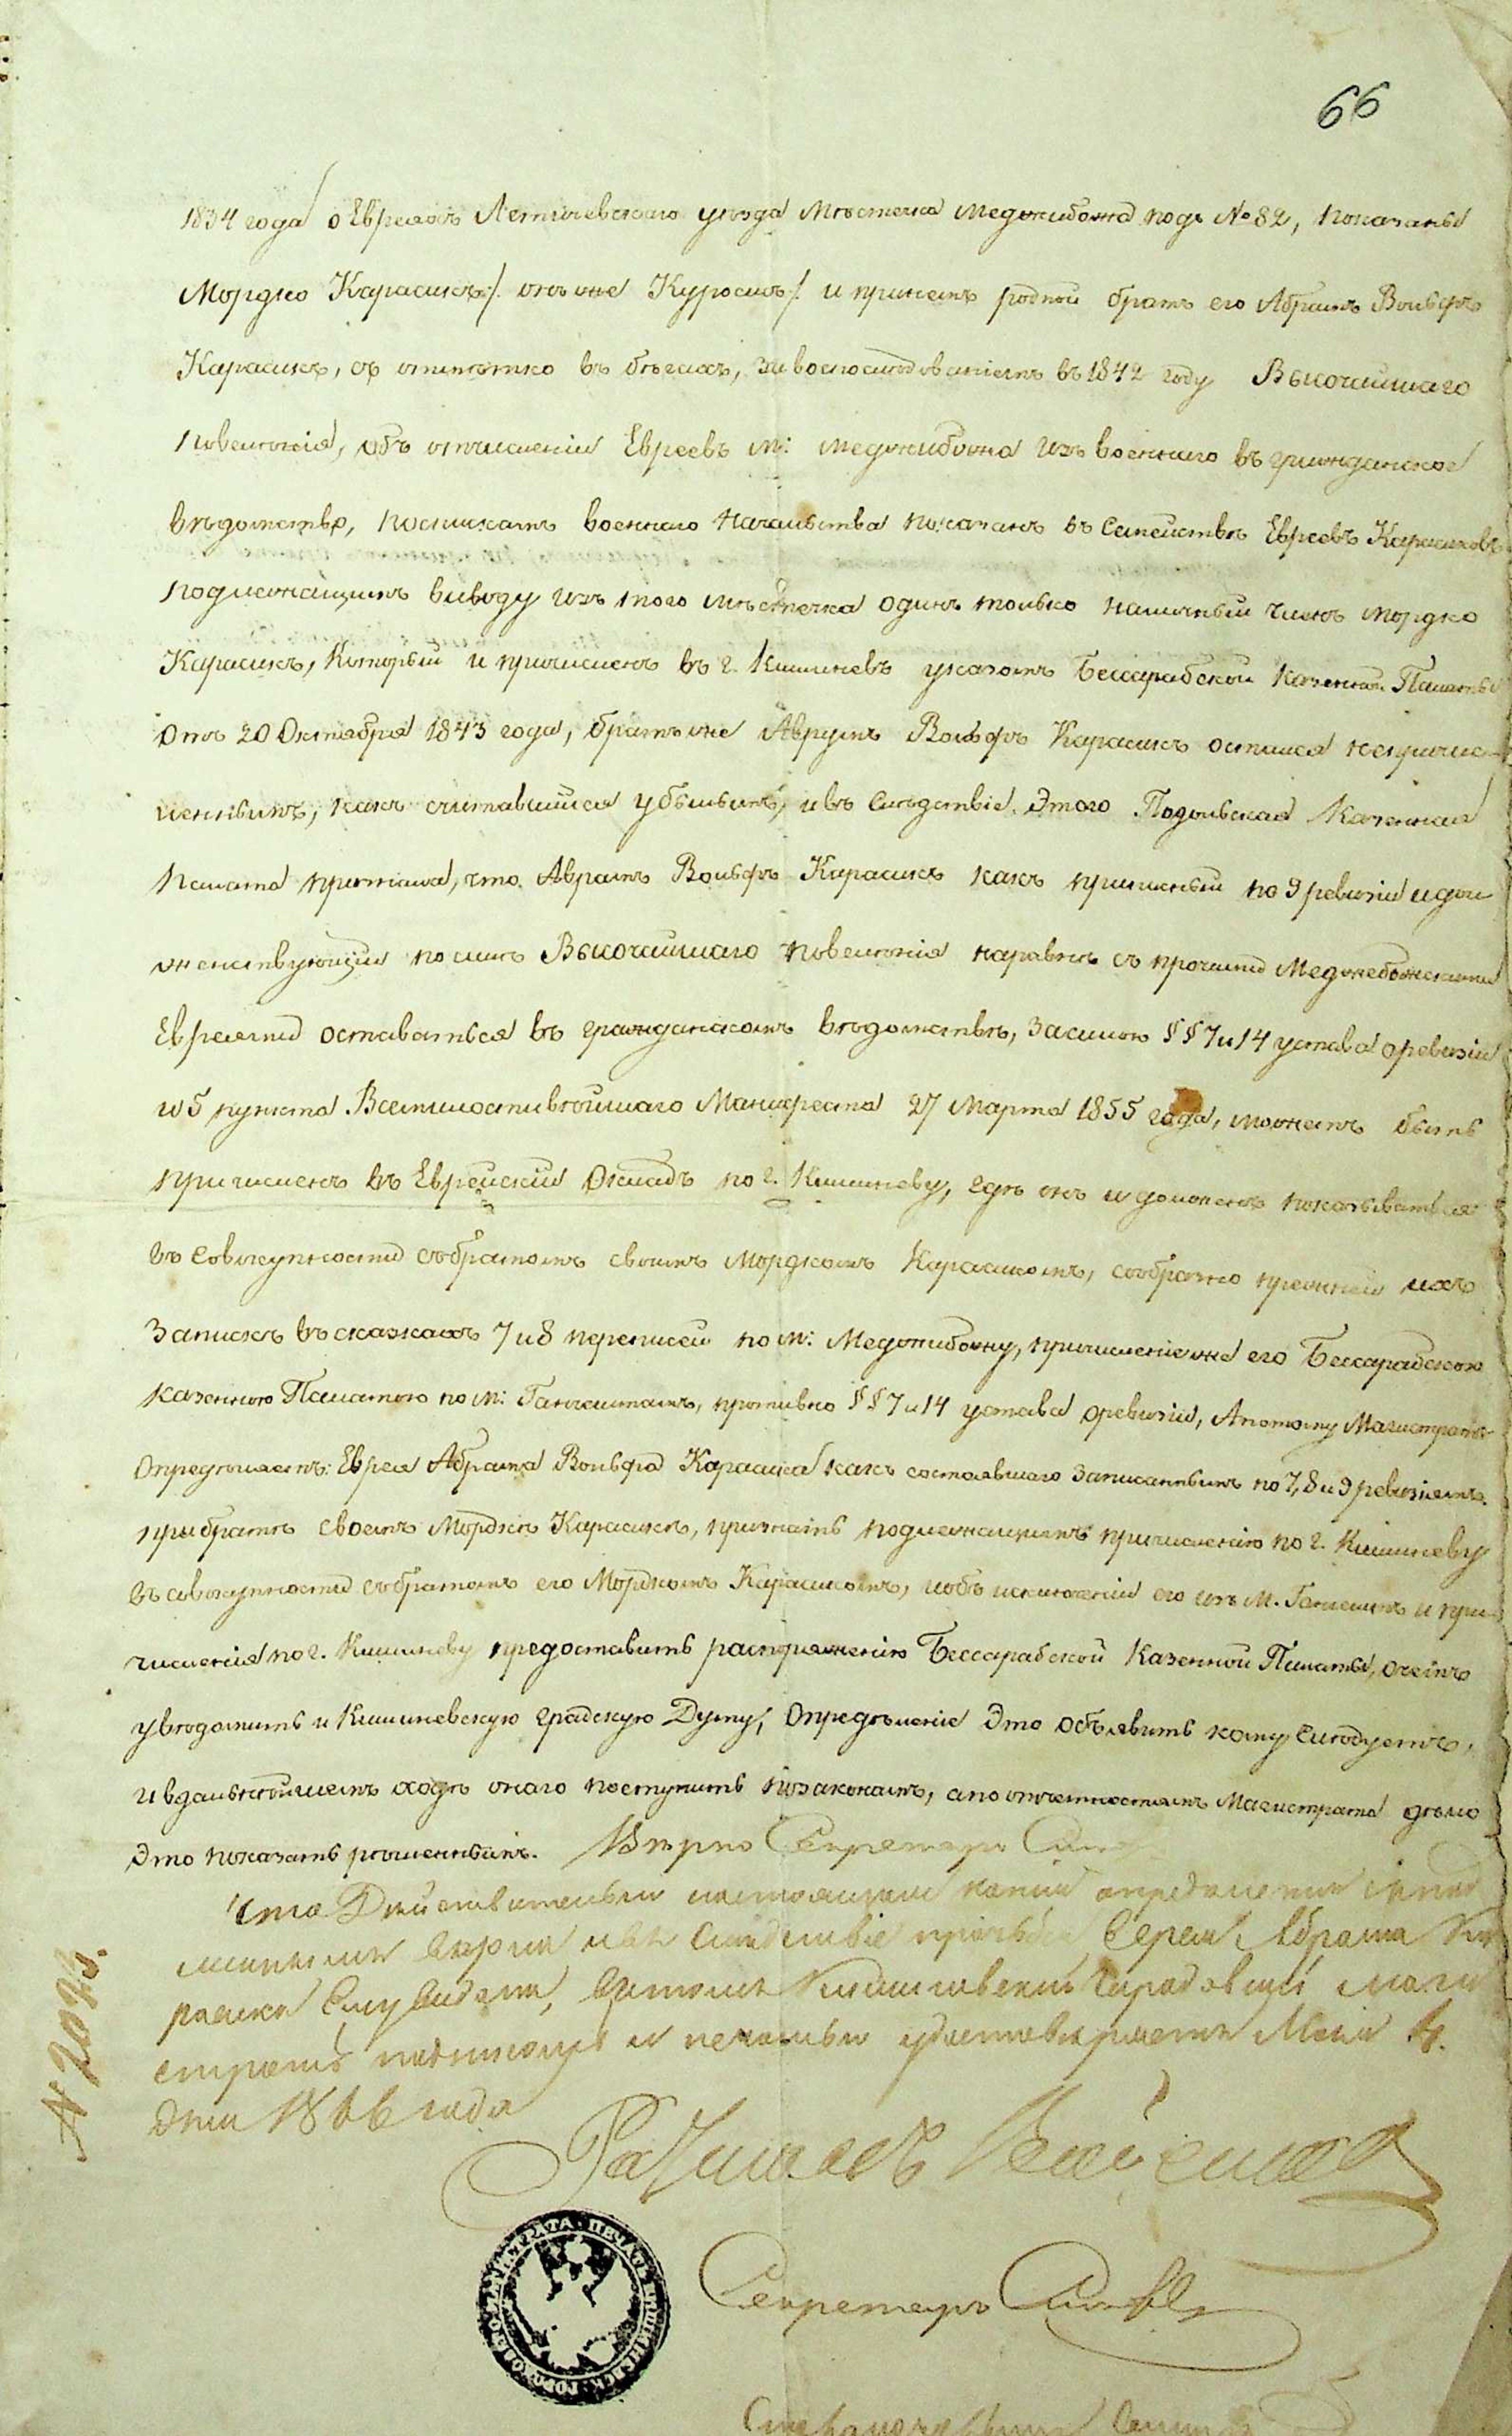 66
1834 года/ о Евреяхъ Летичевскаго уѣзда Мѣстечка Меджибожа подъ № 82, показаны
Мордко Карасикъ/: онъ же Куросикъ/: и при немъ родной братъ его Абрамъ Вольфъ
Карасикъ, съ отмѣткою въ бѣгахъ, за воспослѣдованіемъ въ 1842 году Высочайшаго
повеленія, объ отчисленіи Евреевъ м: Меджибожа изъ военнаго въ гражданское
вѣдомство, по спискамъ военнаго Начальства показанъ въ Семействѣ Евреевъ Карасиковъ
подлежащимъ выводу изъ того мѣстечка одинъ только наличный членъ Мордко
Карасикъ, который и причисленъ въ г. Кишиневъ указомъ Бессарабской Казенной Палаты
отъ 20 Октября 1843 года, братъ же Аврумъ Вольфъ Карасикъ остался непричис-
леннымъ, какъ считавшійся убылымъ, и въ слѣдствіе этого Подольская Казенная
Палата признала, что Аврамъ Вольфъ Карасикъ какъ приписный по 9 ревизіи и дол
женствующій по силѣ Высочайшаго повеленія наравнѣ съ прочими Меджебожскими
Евреями оставаться въ гражданскомъ вѣдомствѣ, за силою §§ 7 и 14 устава о ревизіи
и 5 пункта Всемилостивѣйшаго Манифеста 27 Марта 1855 года, можетъ быть
причисленъ въ Еврейскій Окладъ по г. Кишиневу, гдѣ онъ и долженъ показываться
въ совокупности съ братомъ своимъ Мордкомъ Карасикомъ, сообразно прежней ихъ
Запискѣ въ сказкахъ 7 и 8 переписей по м: Меджибожу, причисленіе же его Бессарабскою
Казенною Палатою по м: Ганчештамъ, противно §§ 7 и 14 устава о ревизіи, А потому Магистратъ
Опредѣляетъ: Еврея Абрама Вольфа Карасика какъ состоявшаго записаннымъ по 7, 8 и 9 ревизіямъ
при братѣ своемъ Мордкѣ Карасикѣ, признать подлежащимъ причисленію по г. Кишиневу
въ совокупности съ братомъ его Мордкомъ Карасикомъ, и объ исключеніи его изъ М. Ганчештъ и при-
численія по г. Кишиневу предоставить распоряженію Бессарабской Казенной Палаты, о чемъ
увѣдомить и Кишиневскую градскую Думу, Опредѣленіе это объявить кому слѣдуетъ,
и въ дальнѣйшемъ ходѣ онаго поступить по законамъ, а по отчетностямъ Магистрата дѣло
это показать рѣшеннымъ. Вѣрно Секретарь
Что Дѣйствительно настоящая копія опредѣленія съ под
линнымъ вѣрна и въ слѣдствіе прозьбы Еврея Абрама Ка
расика ему выдана, въ томъ Кишиневскій Городовый Маги
стратъ подписомъ и печатью удостоверяетъ Мая 4
дня 1866 года
№ 2023.
Ратманъ
ПЕЧАТЬ КИШИНЕВСК. ГОРОДОВОГО МАГИСТРАТА
Секретарь